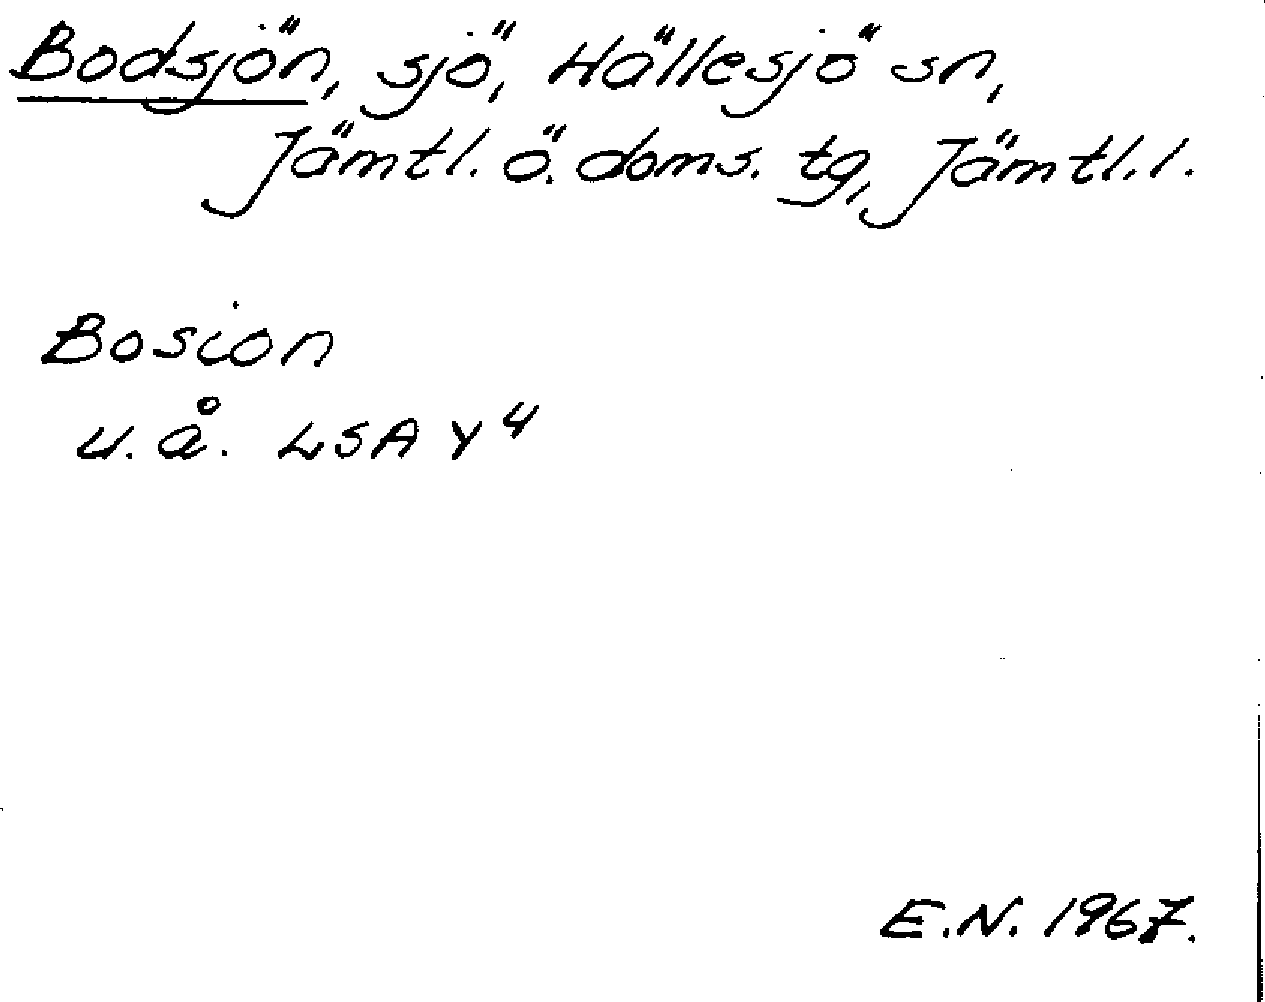 Bodsjön, sjö, Hällesjö sn,
Jämtl. ö. doms. tg, Jämtl. l.
Bosion
u. å. LSA Y4
E.N. 1967.